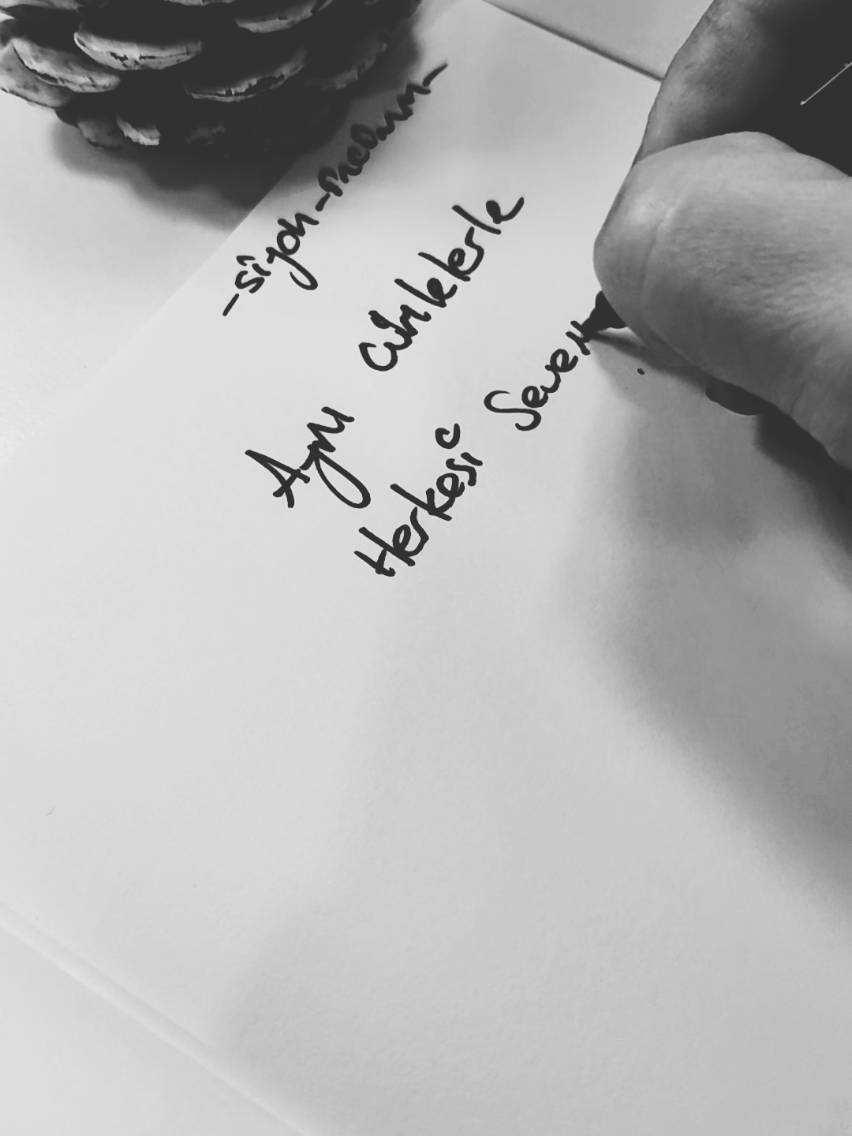 -Siyah-
Aynı Cümlelerle
Herkesi Seven